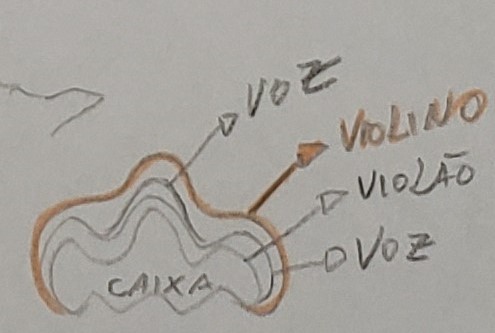 VOZ
VIOLINO
VIOLÃO
VOZ
CAIXA